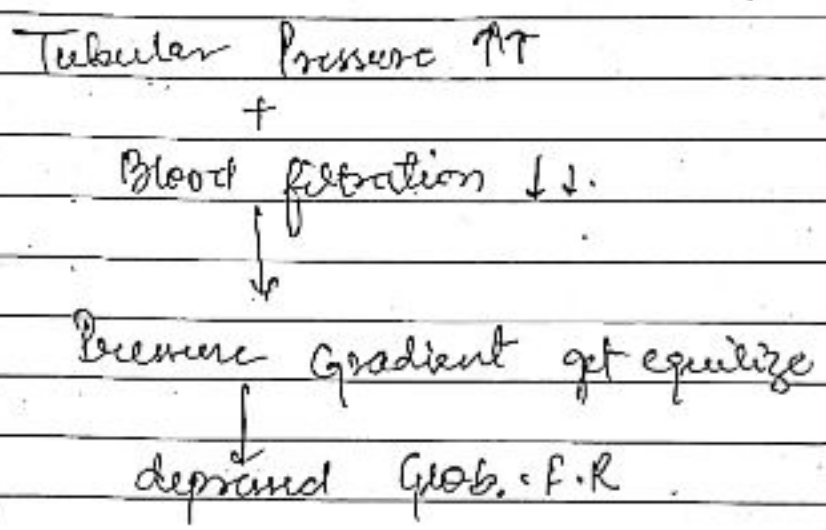 Tubular Pressure ↑↑
+
Blood filtration ↓↓.
↓
Pressure Gradient get equilize
↓
depressed Glob. F.R